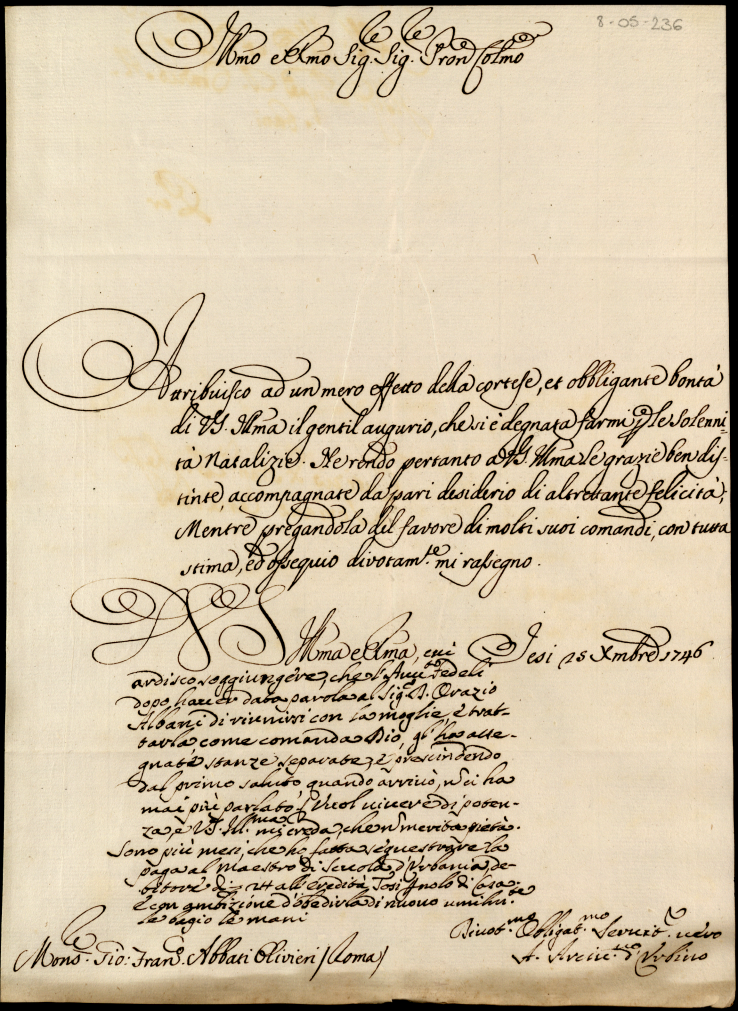 8-05-236
Illmo e Rmo Sig.le Sig.le Pron Colmo
Attribuisco ad un mero effetto della cortese, et obbligante bontà
di V.S. Illma il gentil augurio, che si è degnata farmi p le Solenni=
tà Natalizie. Ne rendo pertanto a V.S. Illma le grazie ben dis=
tinte, accompagnate da pari desiderio di altretante felicità,
Mentre pregandola del favore di molti suoi comandi, con tutta
stima, ed ossequio divotam.te mi rassegno.
V S Illma e Rma, cui
Jesi 25 Xmbre 1746
ardisco soggiungere, che l'Avv.to Fedeli
dopo haver data parola al Sig. D. Orazio
Albani di riunirsi con la moglie, e trat-
tarla come comanda Dio, gl'ha asse-
gnate stanze separate, e prescindendo
dal primo saluto quando arrivò, n ci ha
mai più parlato. Vuol vivere di poten-
za, e V.S. Ill.ma mi creda, che n merita pietà.
Sono più mesi, che ho fatta sequestrare la
paga al Maestro di Scuola d'Urbania, de-
bitore di 24 all'eredità, Così Angelo di Casa.
E con ambizione d'obedirla di nuovo umilm.te
le bagio le mani
Divot.mo Obligat.mo Servit.e vero
A. Arciv.vo d'Urbino
Mons.le Gio: Fran.o Abbati Olivieri (Roma)